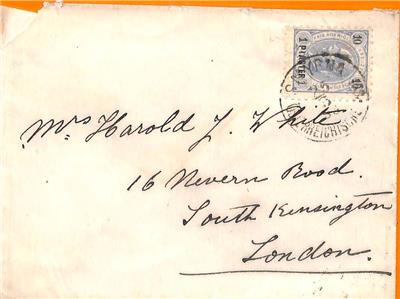 10 10
1 PIASTER 1
SMYRNA
ÖSTERREICHISCHE
Mrs Harold J. White
16 Nevern Road.
South Kensington
London.